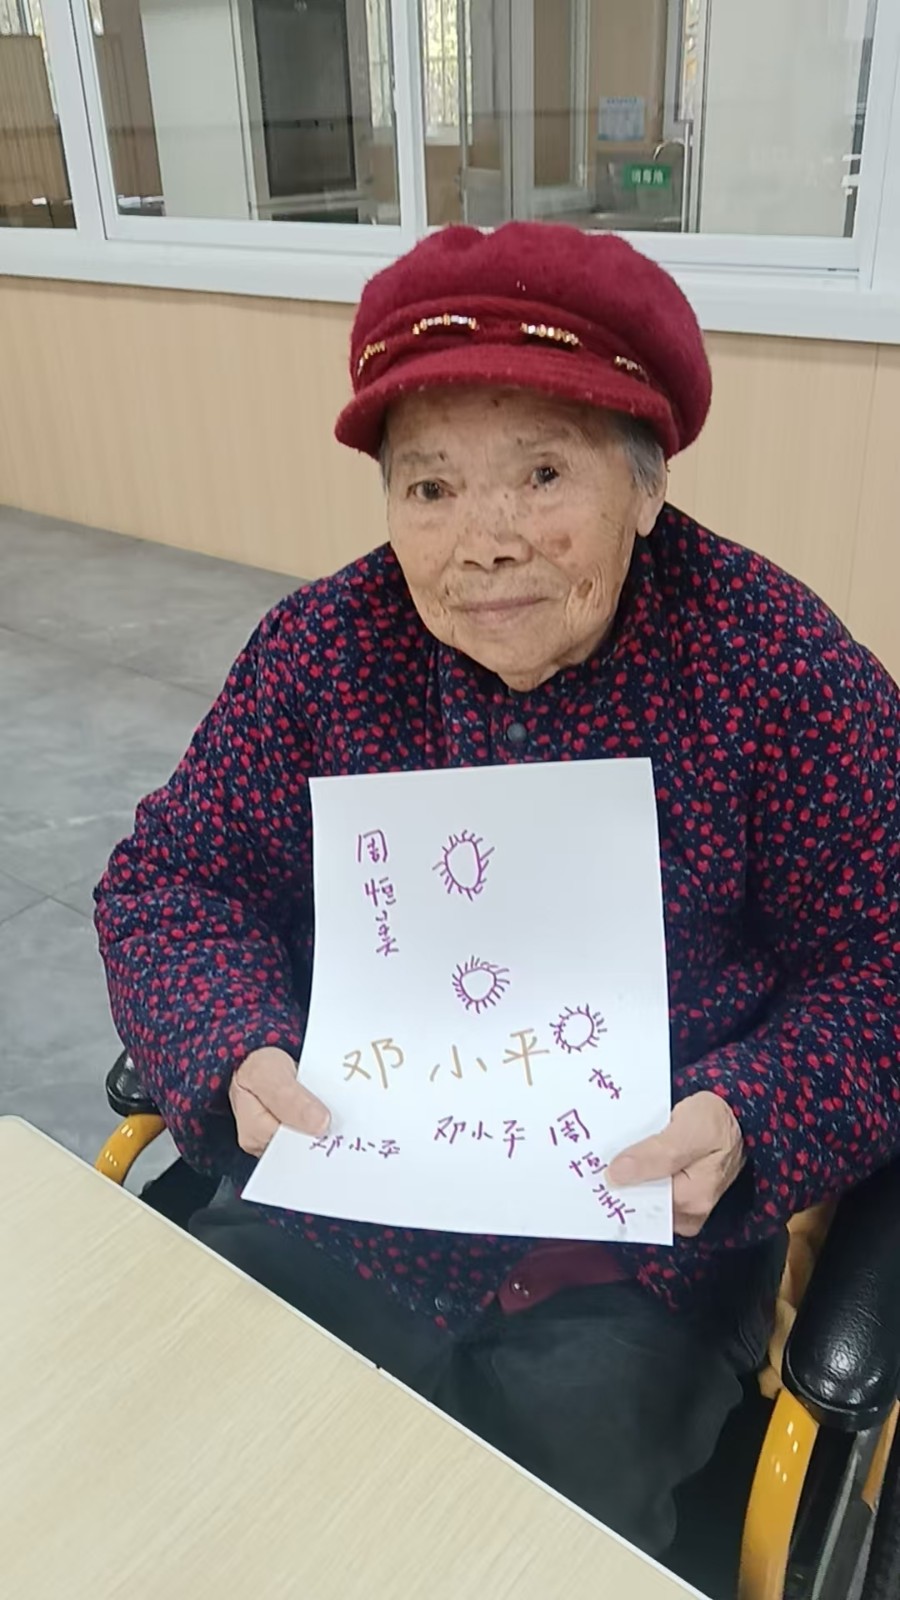 消毒池
周恒美
邓小平
李
邓小平 邓小平
周恒美